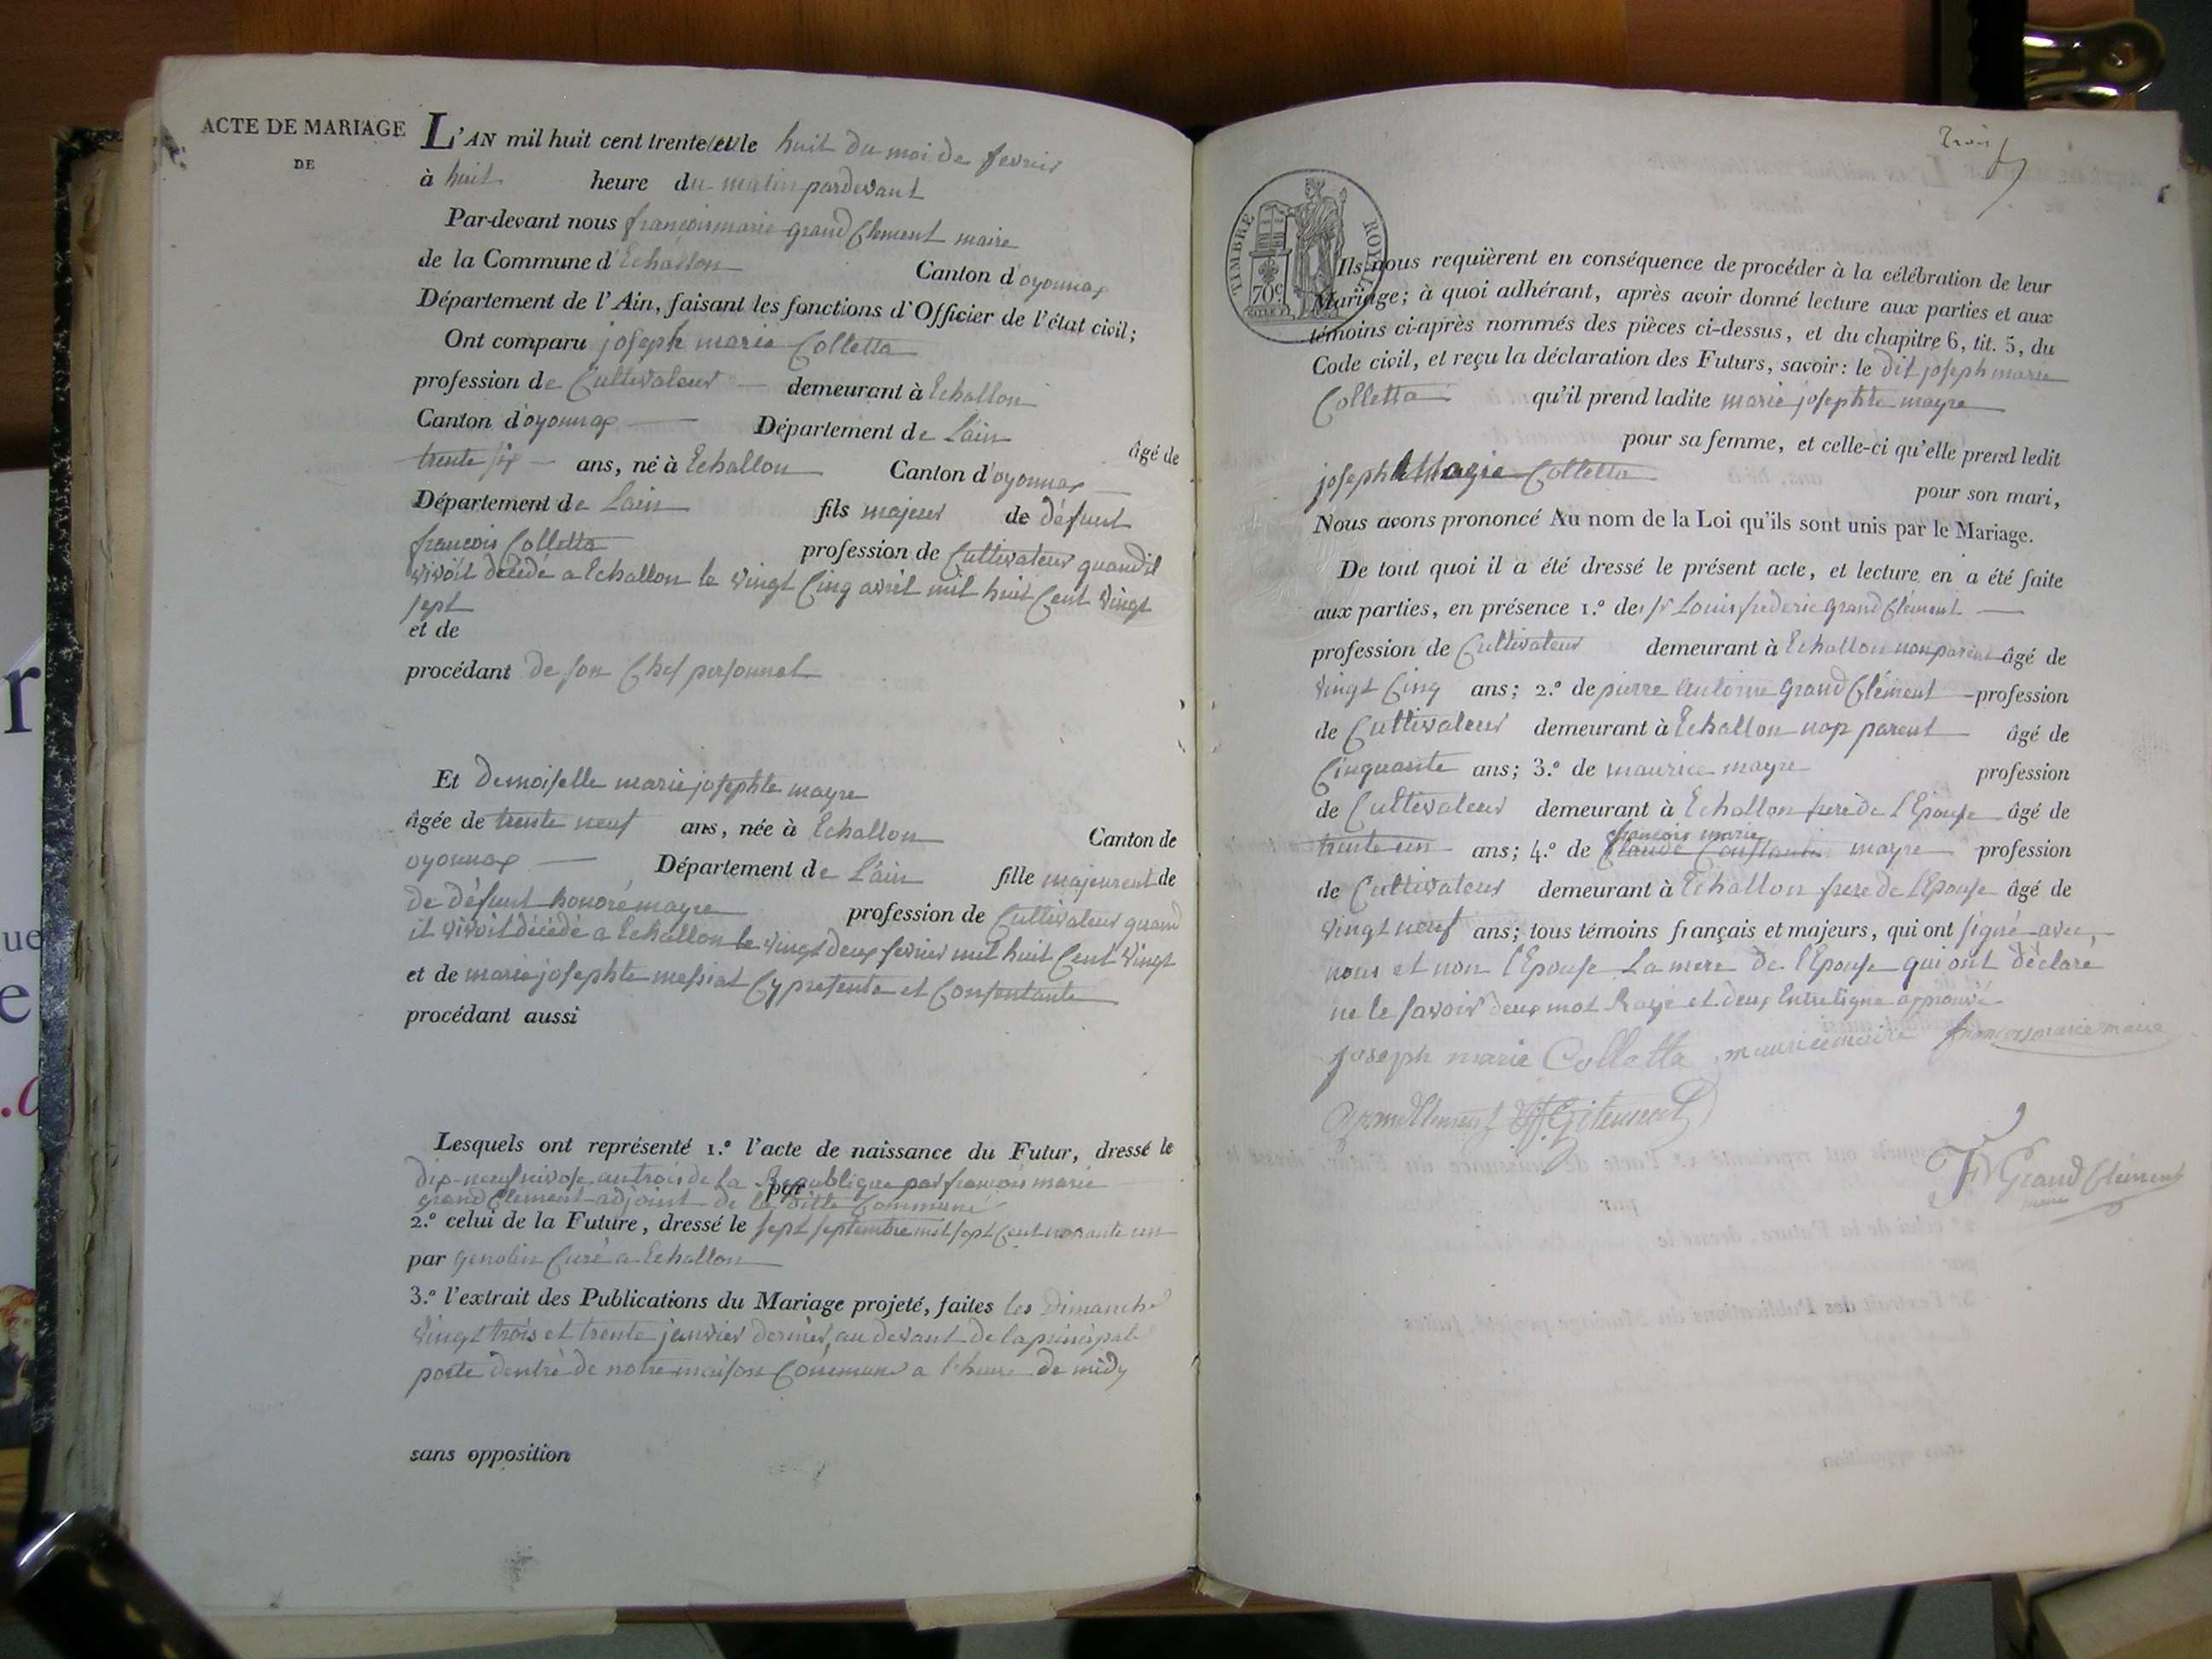 ACTE DE MARIAGE
DE
L'AN mil huit cent trente et un le huit du moi de fevrier
à huit heure du matin pardevant
Par-devant nous francoismarie grand Clement maire
de la Commune d'Echallon Canton d'oyonnax
Département de l'Ain, faisant les fonctions d'Officier de l'état civil;
Ont comparu joseph marie Colletta
profession de Cultivateur demeurant à Echallon
Canton d'oyonnax Département de Lain
âgé de
trente six ans, né à Echallon Canton d'oyonnax
Département de Lain fils majeur de défunt
francois Colletta profession de Cultivateur quand il
vivoit décédé a Echallon le vingt Cinq avril mil huit Cent vingt
sept
et de
procédant de son Chef personnel
Et Demoiselle marie josephte mayre
âgée de trente neuf ans, née à Echallon Canton de
oyonnax Département de L'ain fille majeure de
de défunt honoré mayre profession de Cultivateur quand
il vivoit décédé a Echallon le vingt deux fevrier mil huit Cent vingt
et de marie josephte messiat Cy presente et Consentante
procédant aussi
Lesquels ont représenté 1.° l'acte de naissance du Futur, dressé le
dix-neuf nivose an trois de La Republique par francois marie
par
grand Clement adjoint de la ditte Commune
2.° celui de la Future, dressé le sept septembre mil sept Cent nonante un
par genolin Curé a Echallon
3.° l'extrait des Publications du Mariage projeté, faites les Dimanche
vingt trois et trente janvier dernier, au devant de la principale
porte dentré de notre maison Commune a l'heure de midy
sans opposition
Trois
TIMBRE ROYAL
70c
Ils nous requièrent en conséquence de procéder à la célébration de leur
Mariage; à quoi adhérant, après avoir donné lecture aux parties et aux
témoins ci-après nommés des pièces ci-dessus, et du chapitre 6, tit. 5, du
Code civil, et reçu la déclaration des Futurs, savoir: le dit joseph marie
Colletta qu'il prend ladite marie josephte mayre
pour sa femme, et celle-ci qu'elle prend ledit
joseph Marie Colletta
pour son mari,
Nous avons prononcé Au nom de la Loi qu'ils sont unis par le Mariage.
De tout quoi il a été dressé le présent acte, et lecture en a été faite
aux parties, en présence 1.° de sr Louis frederic grand Clément
profession de Cultivateur demeurant à Echallon non parent âgé de
vingt Cinq ans; 2.° de pierre Antoine Grand Clément profession
de Cultivateur demeurant à Echallon non parent âgé de
Cinquante ans; 3.° de maurice mayre profession
de Cultivateur demeurant à Echallon frere de l'Epouse âgé de
francois marie
trente un ans; 4.° de Claude Constantin mayre profession
de Cultivateur demeurant à Echallon frere de l'Epouse âgé de
vingt neuf ans; tous témoins français et majeurs, qui ont signé avec
nous et non l'Epouse La mere de l'Epouse qui ont déclaré
ne le savoir deux mot Rayé et deux Entreligne approuvé
joseph marie Colletta maurice maire francois marie maire
grandClement
GrandClément
maire